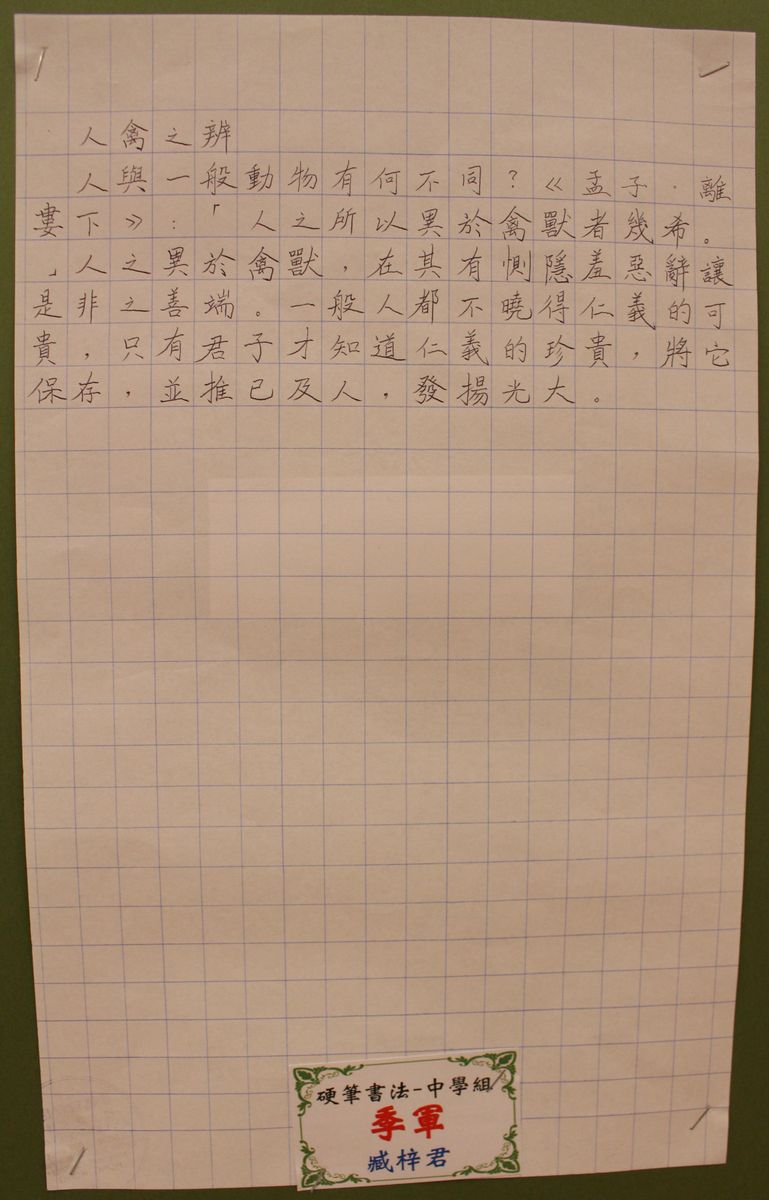 人禽之辨
人與一般動物有何不同？《孟子．離
婁下》：「人之所以異於禽獸者幾希。
」人之異於禽獸，在其有惻隱羞惡辭讓
是非之善端。一般人都不曉得仁義的可
貴，只有君子才知道仁義的珍貴，將它
保存，並推己及人，發揚光大。
硬筆書法-中學組
季軍
臧梓君